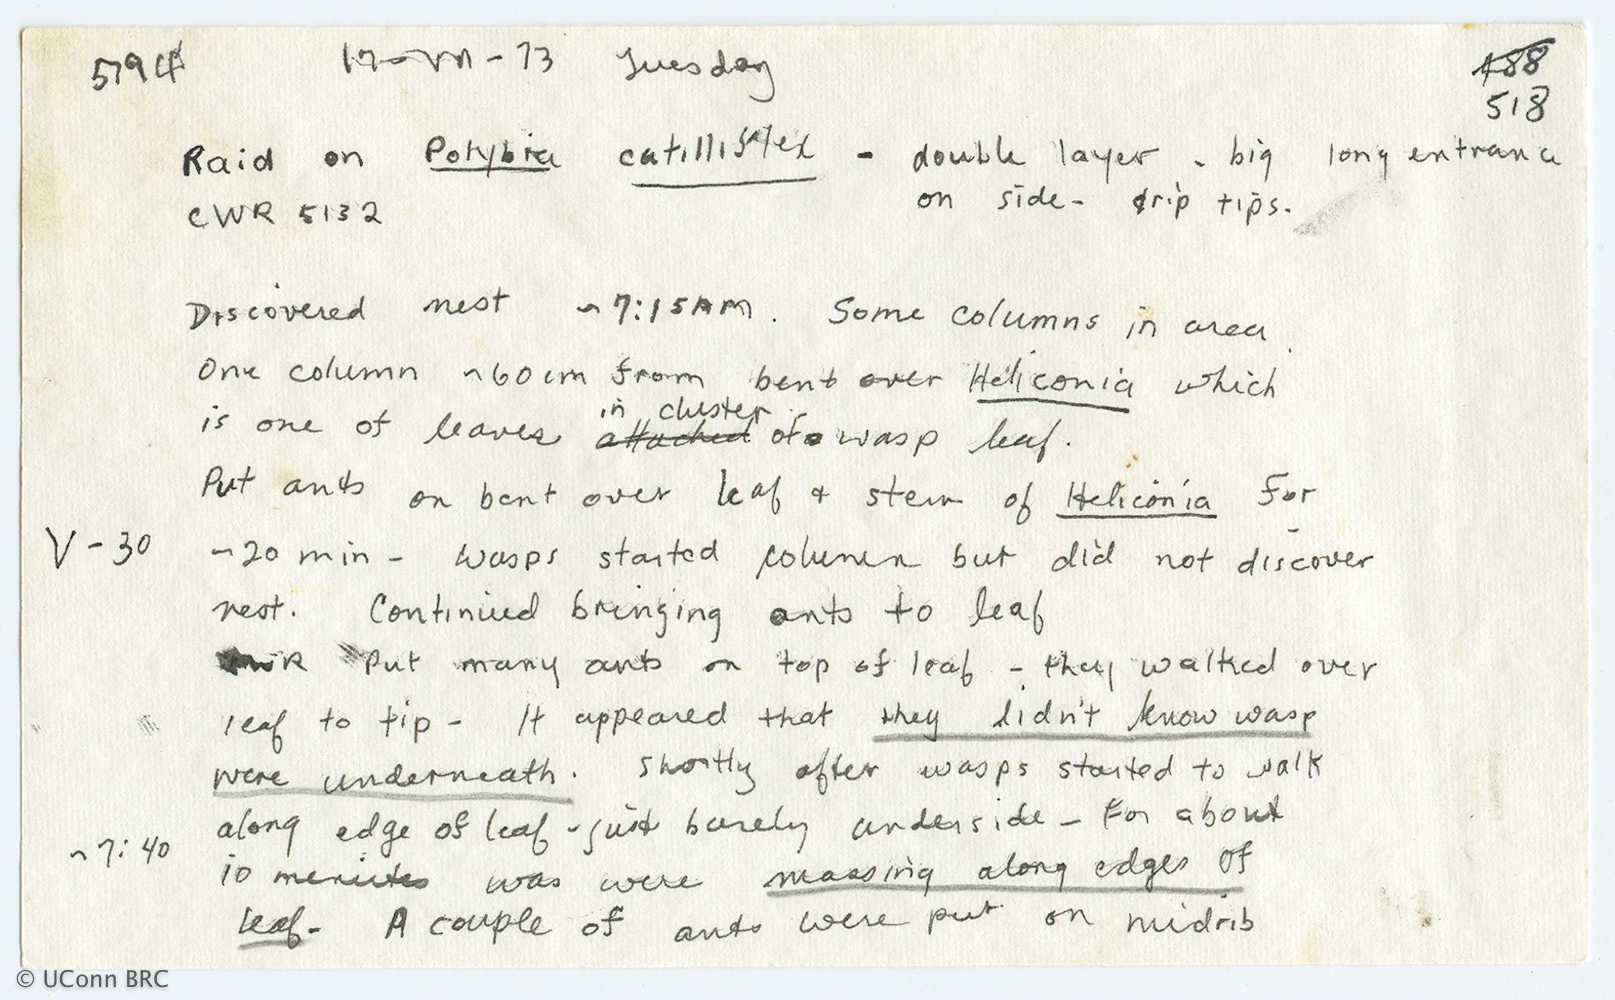 5794 17-VII-73 Tuesday 488
518
Raid on Polybia catillifex - double layer - big long entrance
CWR 5132 on side - drip tips.
Discovered nest ~7:15AM. Some columns in area.
One column ~60cm from bent over Heliconia which
is one of leaves attached in cluster of wasp leaf.
Put ants on bent over leaf & stem of Heliconia For
V-30 ~20 min - wasps started column but did not discover
nest. Continued bringing ants to leaf
CWR Put many ants on top of leaf - they walked over
leaf to tip - It appeared that they didn't know wasp
were underneath. Shortly after wasps started to walk
along edge of leaf - just barely underside - For about
~7:40 10 minutes was were massing along edges of
leaf - A couple of ants were put on midrib
© UConn BRC